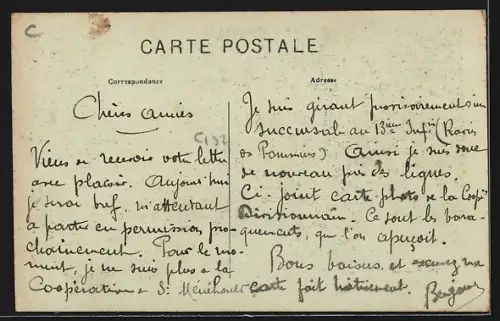 C
CARTE POSTALE
Correspondance
Adresse
Chères amies
C132
Viens de recevoir votre lettre
avec plaisir. Aujourd'hui
je serai bref, m'attendant
à partir en permission pro-
chainement. Pour le mo-
ment, je ne suis plus à la
Coopération de St Ménéhould
Je suis gérant provisoirement d'une
succursale au 13ième Inf
Ainsi je suis donc
de nouveau près des lignes.
Ci-joint carte-photo de la Coopé
Divisionnaire. Ce sont les bara-
quements, que l'on aperçoit.
Bons baisers, et excusez ma
carte fait hâtivement.